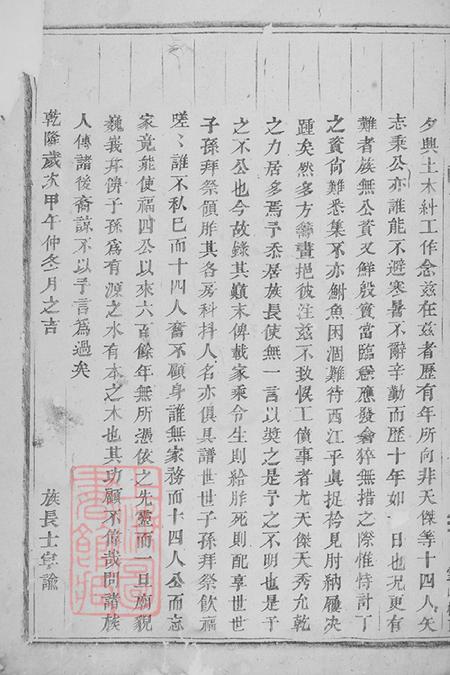 夕興土木糾工作念茲在茲者歷有年所向非天傑等十四人矢
志秉公亦誰能不避寒暑不辭辛勤而歷十年如一日也况更有
難者族無公資又鮮殷實當臨懸應發倉猝無措之際惟恃計丁
之資尚難悉集不亦鮒魚困涸難待西江乎眞捉衿見肘納履决
踵矣然多方籌畫挹彼注茲不致悞工僨事者尤天傑天秀允乾
之力居多焉予忝居族長使無一言以奬之是予之不明也有言
之不公也今故錄其巔末俾載家乘令生則給胙死則配享世世
子孫拜祭領胙其各房科抖人名亦俱具譜世世子孫拜祭飲福
嗟〻誰不私已而十四人奮不顧身誰無家務而十四人公而忘
家竟能使福四公以來六百餘年無所憑依之先靈而一旦廟貌
巍峩幷俾子孫爲有源之水有本之木也其功顧不偉哉問諸族
人傳諸後裔諒不以予言爲過矣
乾隆歲次甲午仲冬月之吉
族長士寧諭